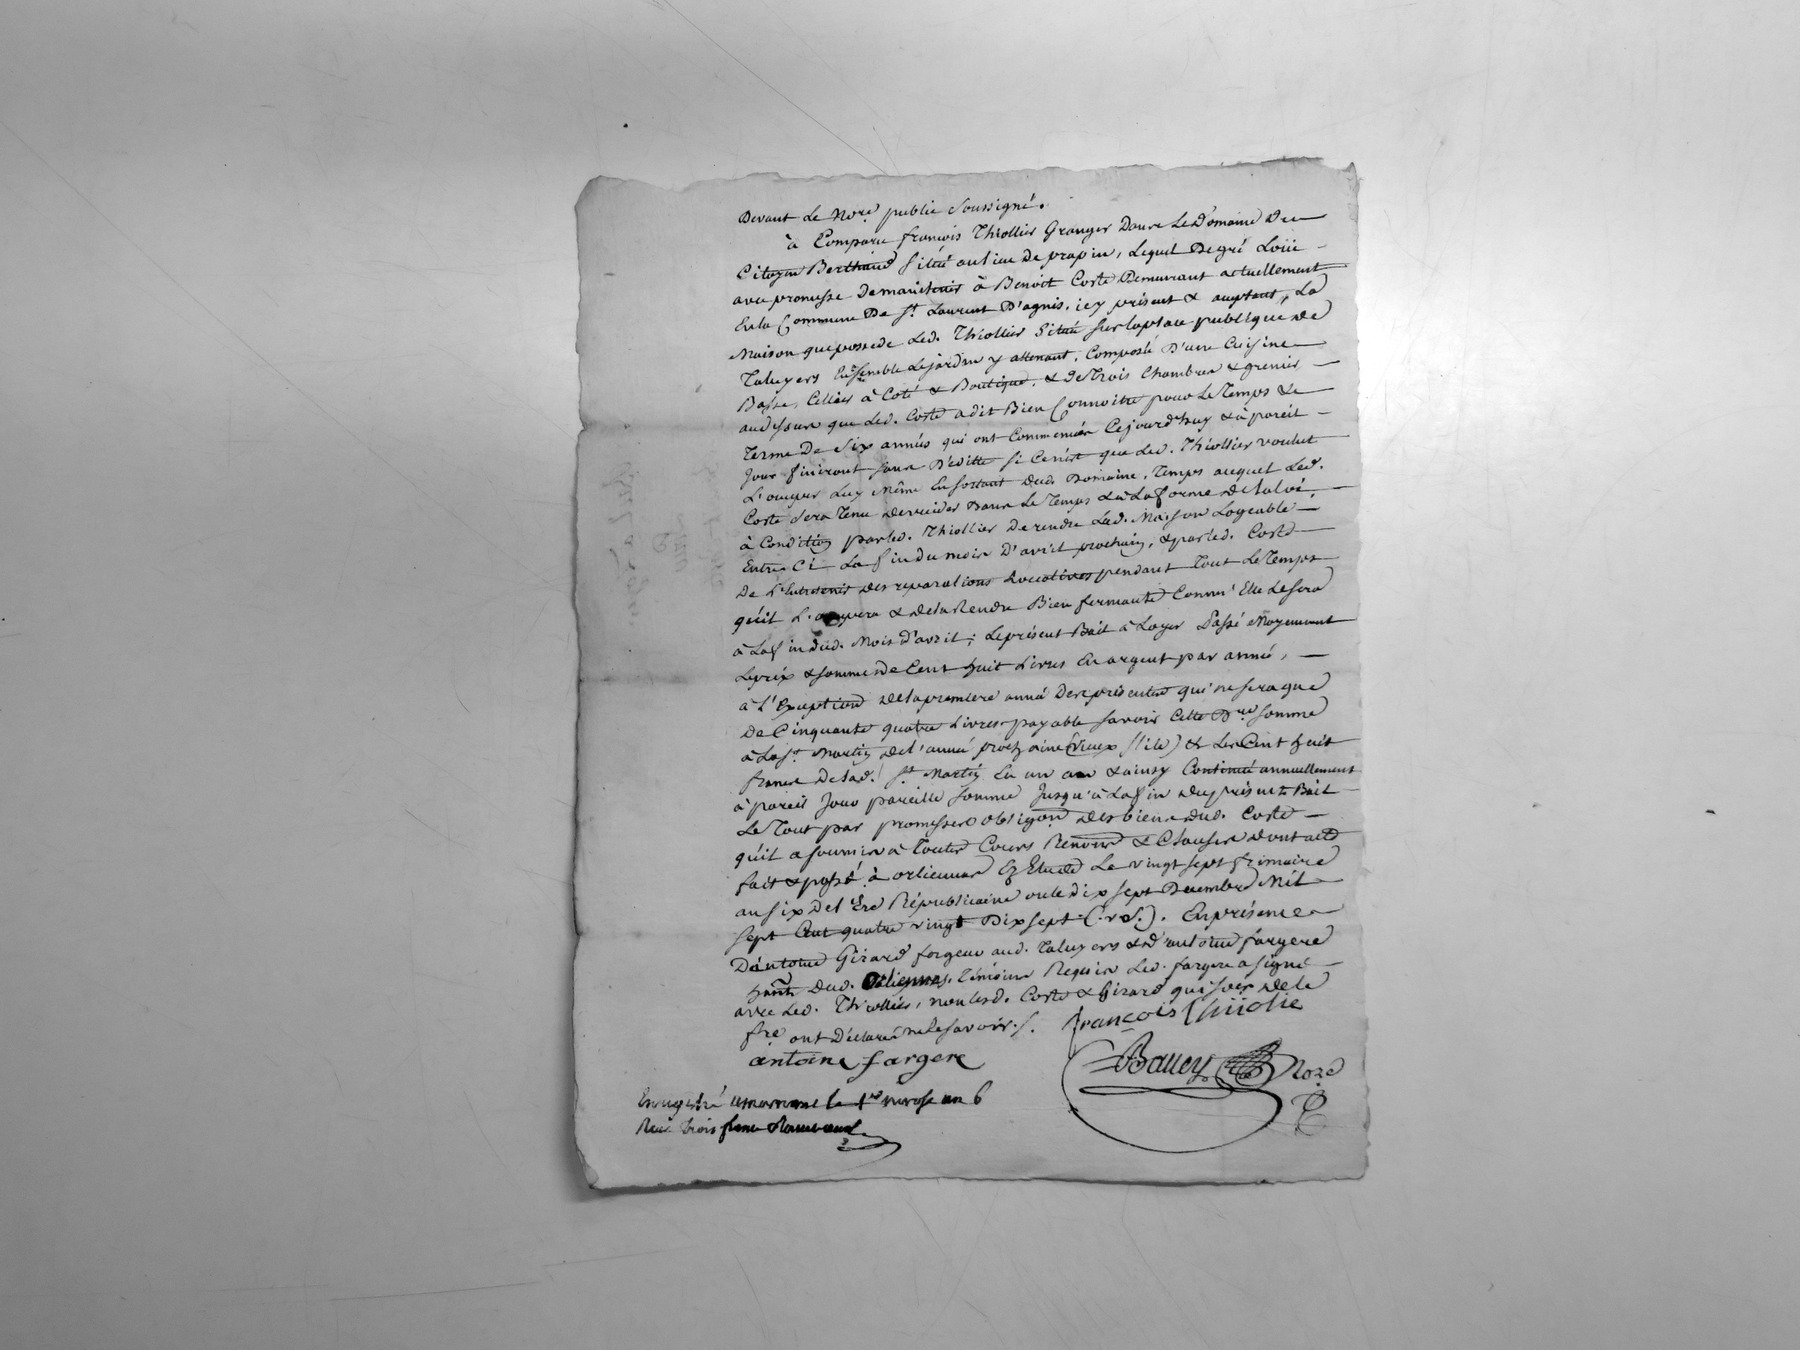 Devant Le Nore public soussigné.
à Comparu françois Thiollier Granger Dans Le Domaine Du
Citoyen Berthaud situé au lieu De prapin, Lequel De gré Loüe
avec promesse De maintenir à Benoit Coste Demeurant actuellement
En la Commune De St Laurent D'agnis, icy présent & acceptant, La
Maison que possede Led. Thiollier Situé sur la place publique de
Taluyers Ensemble Le jardin y attenant, Composée D'une Cuisine
Basse, Cellier à Coté & Boutique, & de Trois Chambres & grenier
au dessus que Led. Coste a dit Bien Connoitre pour Le Temps &
Terme De Six années qui ont Commencées Cejourd'huy & à pareil
Jour finiront sans D'éditte si Ce n'est que Led. Thiollier voulut
L'occuper Luy Même En sortant dud. Domaine, Temps auquel Led.
Coste sera Tenu de vuider Dans Le Temps & à La forme de la loi,
à Condition par led. Thiollier De rendre Lad. Maison Logeable
Entre Ci La fin du mois D'avril prochain, & par led. Coste
De L'Entretenir des réparations Locatives pendant Tout Le Temps
qu'il L'occupera & de la Rendre Bien fermante Comm' Elle Le sera
à La fin dud. Mois d'avril; Le présent Bail à Loyer Passé Moyennant
Le prix & somme de Cent huit Livres En argent par année,
à L'Exception de la premiere année Des présentes qui ne sera que
De Cinquante quatre Livres payable savoir Cette Dre somme
à La St Martin de l'année prochaine (vieux stile) & Les Cent huit
francs De lad. St Martin En un an & ainsy Continué annuellement
à pareil Jour pareille somme Jusqu'à La fin du présent Bail
Le Tout par promesses obligaon des biens dud. Coste
qu'il a soumis a Toutes Cours Renons & Clauses dont acte
fait & passé à orlienas En Etude Le vingt sept frimaire
an six De l'Ere Républicaine ou le dix sept Decembre Mil
sept Cent quatre vingt Dix sept (v. S.). En présence
D'antoine Girard forgeur aud. Taluyers & D'antoine fargere
hant dud. Orliennas, témoins Requis Led. fargere a signé
avec Led. Thiollier, non lesd. Coste & Girard qui pour de le
fre ont Déclaré ne le savoir.
françois Thiiolie
antoine fargere
Bailly Nore
Enregistré a mornant le 1er nivose an 6
Reçu trois francs